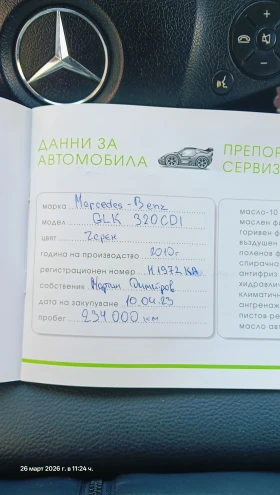 ДАННИ ЗА
АВТОМОБИЛА
марка Mercedes-Benz
модел GLK 320CDI
цвят Черен
година на производство 2010г
регистрационен номер H1972KA
собственик Мартин Димитров
дата на закупуване 10.04.23
пробег 234.000 км
ПРЕПОР
СЕРВИЗ
масло-10
маслен ф
горивен ф
въздушен
поленов ф
спирачна
антифриз
хидравлич
климатичн
ангренаж
пистов ре
масло авт
26 март 2026 г. в 11:24 ч.